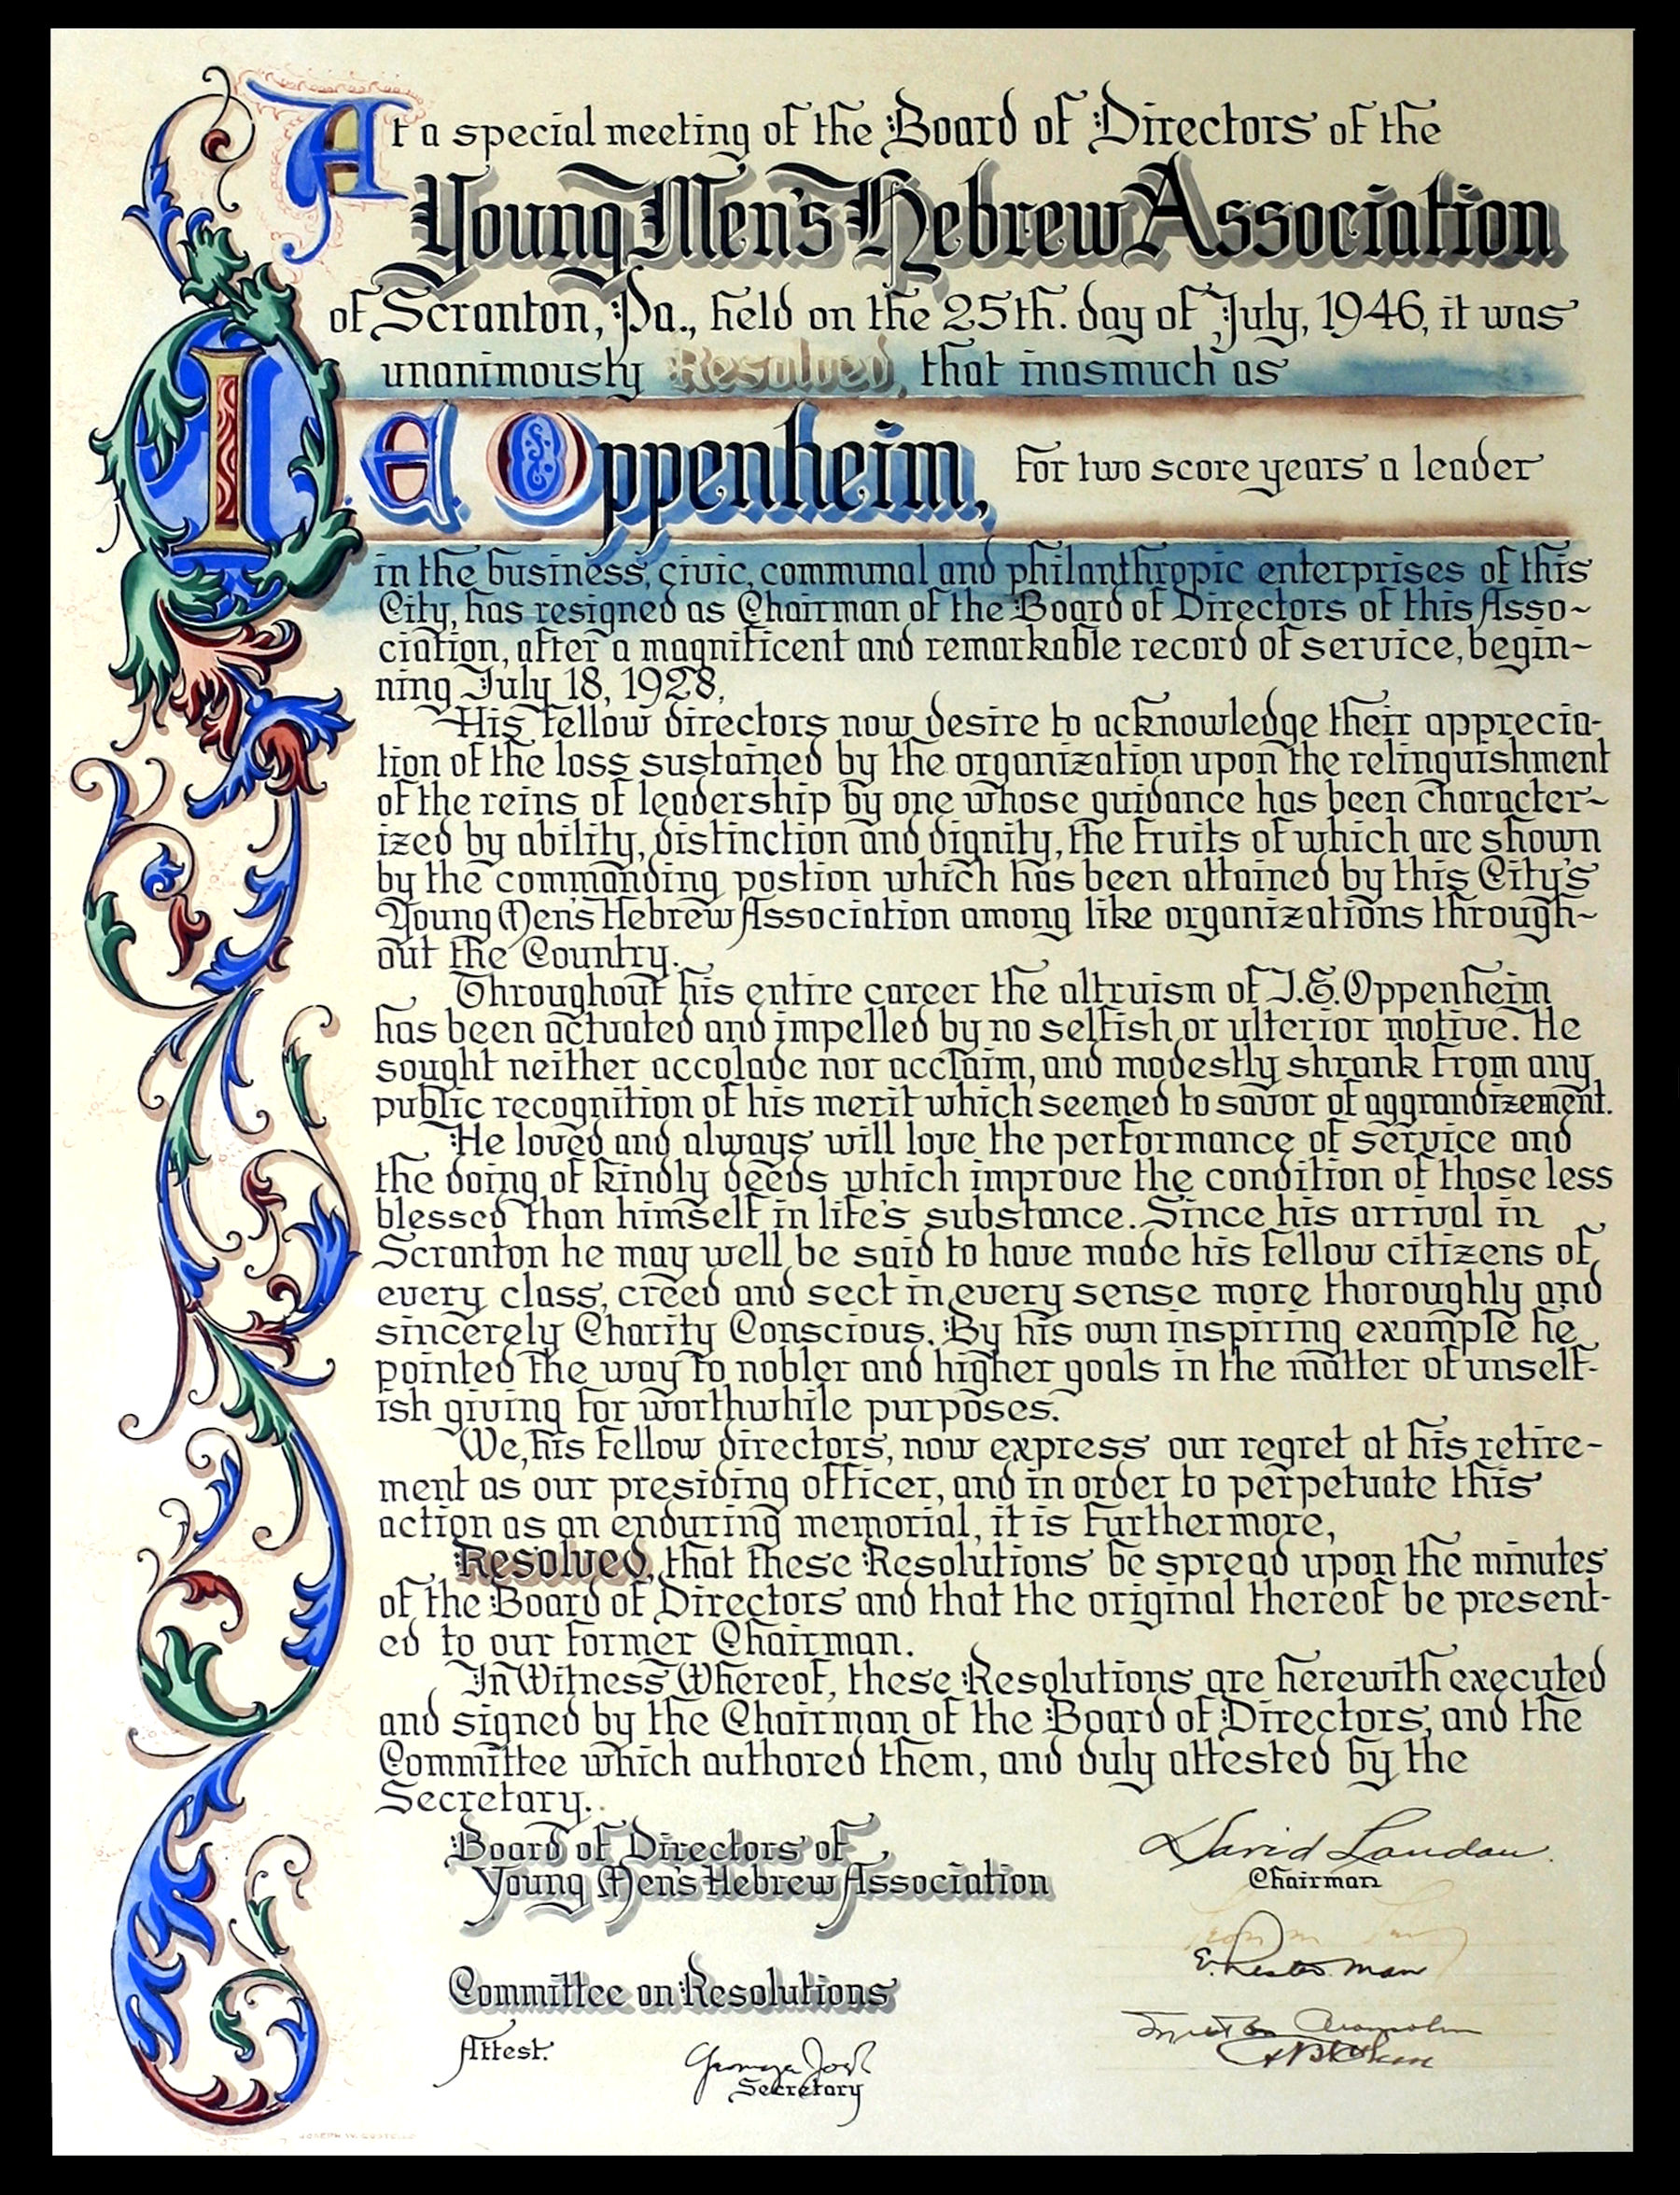 At a special meeting of the Board of Directors of the
Young Men's Hebrew Association
of Scranton, Pa., held on the 25th. day of July, 1946, it was
unanimously Resolved, that inasmuch as
I. E. Oppenheim, for two score years a leader
in the business, civic, communal and philanthropic enterprises of this
City, has resigned as Chairman of the Board of Directors of this Asso~
ciation, after a magnificent and remarkable record of service, begin~
ning July 18, 1928.
His fellow directors now desire to acknowledge their apprecia-
tion of the loss sustained by the organization upon the relinquishment
of the reins of leadership by one whose guidance has been character~
ized by ability, distinction and dignity, the fruits of which are shown
by the commanding postion which has been attained by this City's
Young Men's Hebrew Association among like organizations through~
out the Country.
Throughout his entire career the altruism of I.E. Oppenheim
has been actuated and impelled by no selfish or ulterior motive. He
sought neither accolade nor acclaim, and modestly shrank from any
public recognition of his merit which seemed to savor of aggrandizement.
He loved and always will love the performance of service and
the doing of kindly deeds which improve the condition of those less
blessed than himself in life's substance. Since his arrival in
Scranton he may well be said to have made his fellow citizens of
every class, creed and sect in every sense more thoroughly and
sincerely Charity Conscious. By his own inspiring example he
pointed the way to nobler and higher goals in the matter of unself-
ish giving for worthwhile purposes.
We, his fellow directors, now express our regret at his retire-
ment as our presiding officer, and in order to perpetuate this
action as an enduring memorial, it is furthermore,
Resolved, that these Resolutions be spread upon the minutes
of the Board of Directors and that the original thereof be present-
ed to our former Chairman.
In Witness Whereof, these Resolutions are herewith executed
and signed by the Chairman of the Board of Directors, and the
Committee which authored them, and duly attested by the
Secretary.
Board of Directors of
Young Men's Hebrew Association
David Landau.
Chairman
Committee on Resolutions
Attest:
George Joel
Secretary